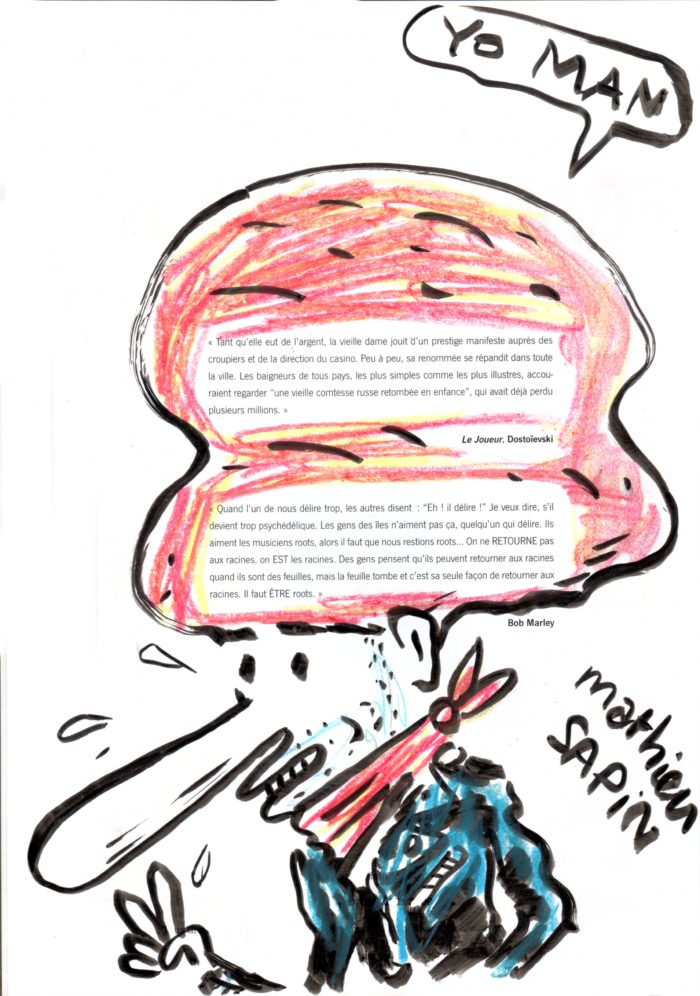 YO MAN
« Tant qu'elle eut de l'argent, la vieille dame jouit d'un prestige manifeste auprès des
croupiers et de la direction du casino. Peu à peu, sa renommée se répandit dans toute
la ville. Les baigneurs de tous pays, les plus simples comme les plus illustres, accou-
raient regarder "une vieille comtesse russe retombée en enfance", qui avait déjà perdu
plusieurs millions. »
Le Joueur, Dostoïevski
« Quand l'un de nous délire trop, les autres disent : "Eh ! il délire !" Je veux dire, s'il
devient trop psychédélique. Les gens des îles n'aiment pas ça, quelqu'un qui délire. Ils
aiment les musiciens roots, alors il faut que nous restions roots... On ne RETOURNE pas
aux racines, on EST les racines. Des gens pensent qu'ils peuvent retourner aux racines
quand ils sont des feuilles, mais la feuille tombe et c'est sa seule façon de retourner aux
racines. Il faut ÊTRE roots. »
Bob Marley
mathieu
SAPIN